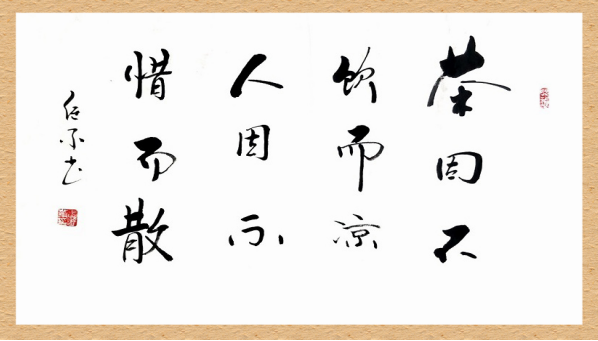 茶因不
饮而凉
人因不
惜而散